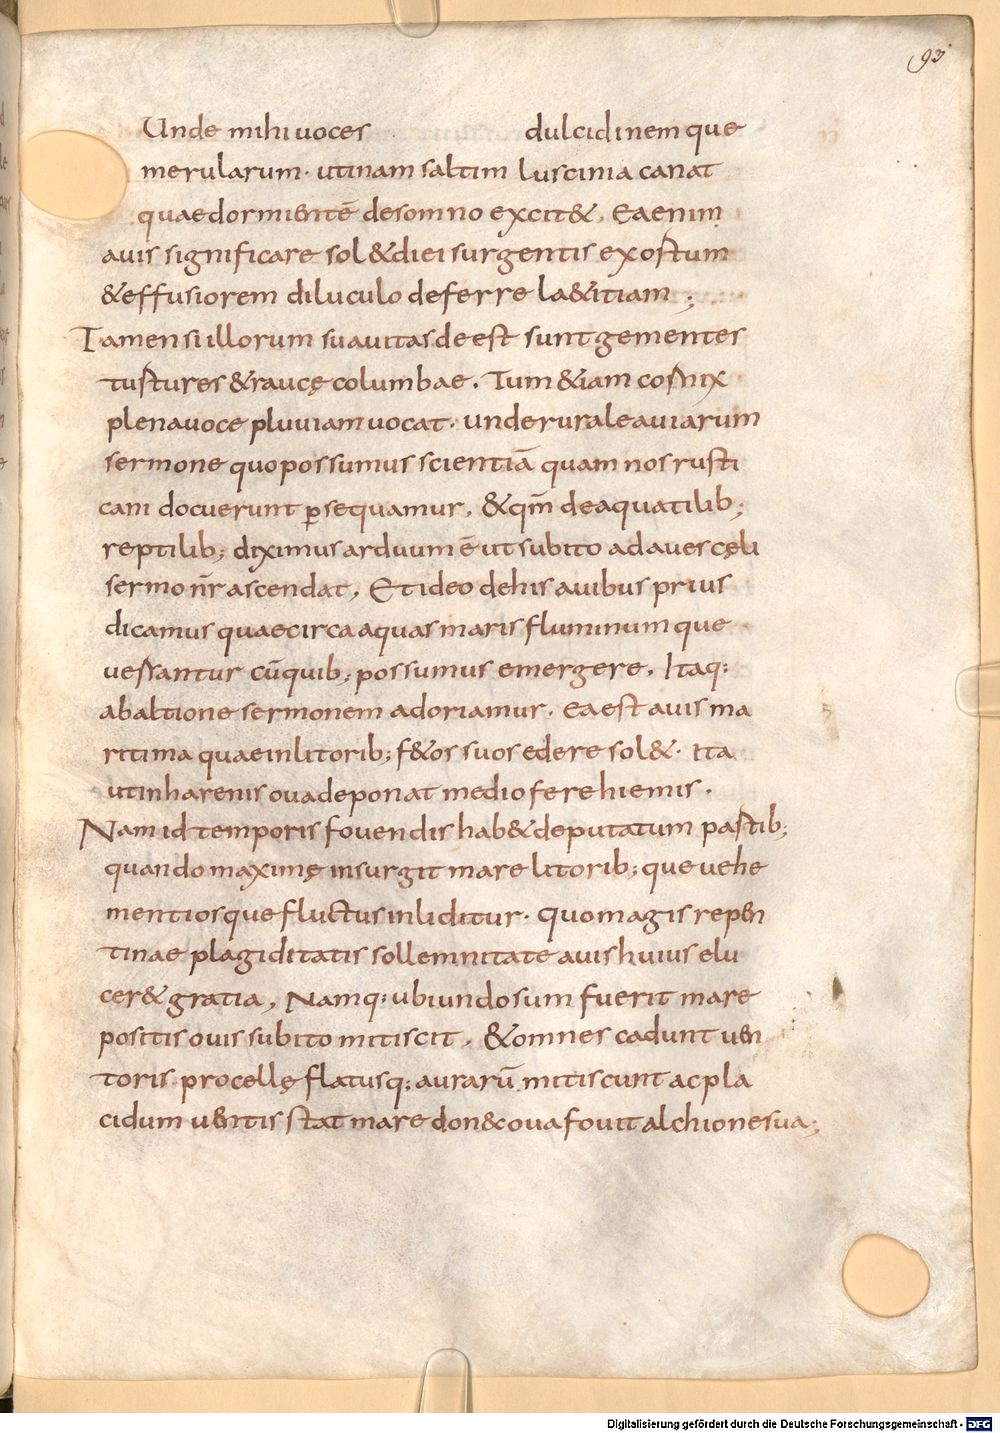 93
Unde mihi uoces dulcidinem que
merularum· utinam saltim luscinia canat
quae dormientē desomno excit&, Eaenim
auis significare sol& diei surgentis exortum
& effusiorem diluculo deferre la&itiam;
Tamensi illorum suauitas deest sunt gementes
turtures & raucę columbae. Tum &iam cornix
plenauoce pluuiam uocat· underurale auiarum
sermone quo possumus scientiā quam nos rusti
cani docuerunt p̱sequamur, & qm̄ deaquatilib;
reptilib; diximus arduum ē ut subito ad aues cęli
sermo nr̄ ascendat, Et ideo dehis auibus prius
dicamus quae circa aquas maris fluminum que
uersantur cū quib; possumus emergere. Itaq:
abaltione sermonem adoriamur. Ea est auis ma
ritima quae in litorib; f&os suos edere sol&· ita
ut in harenis oua deponat medio fere hiemis.
Nam id temporis fouendis hab& deputatum partib;
quando maximę insurgit mare litorib; que uehe
mentiosque fluctus inliditur· quo magis repen
tinae plagiditatis sollemnitate auis huius elu
cer& gratia, Namq: ubi undosum fuerit mare
positis ouis subito mitiscit, & omnes cadunt uen
toris procellę flatusq; aurarū mitiscunt ac pla
cidum uentis stat mare donec oua fouit alchione sua;
Digitalisierung gefördert durch die Deutsche Forschungsgemeinschaft - DFG